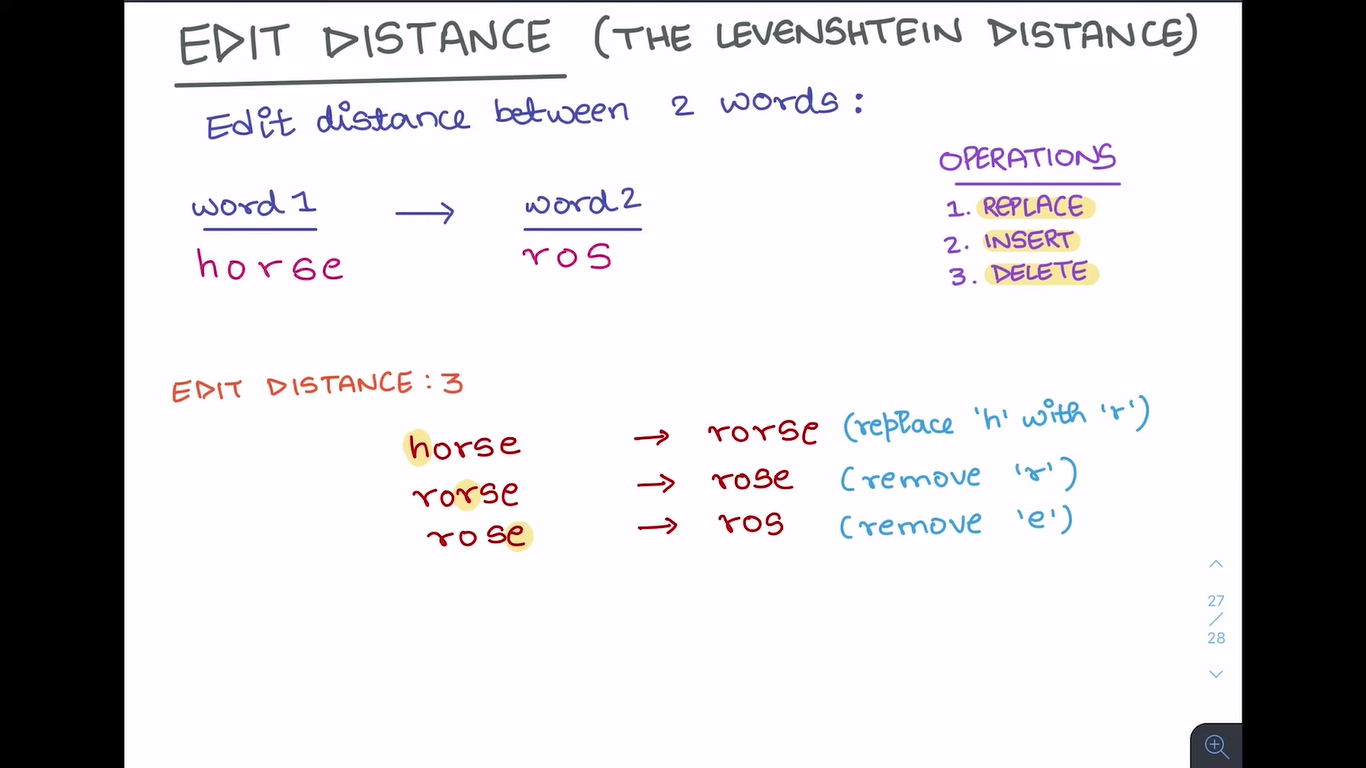 EDIT DISTANCE (THE LEVENSHTEIN DISTANCE)
Edit distance between 2 words:
word1 → word2
horse ros
OPERATIONS
1. REPLACE
2. INSERT
3. DELETE
EDIT DISTANCE: 3
horse → rorse (replace 'h' with 'r')
rorse → rose (remove 'r')
rose → ros (remove 'e')
27
/
28